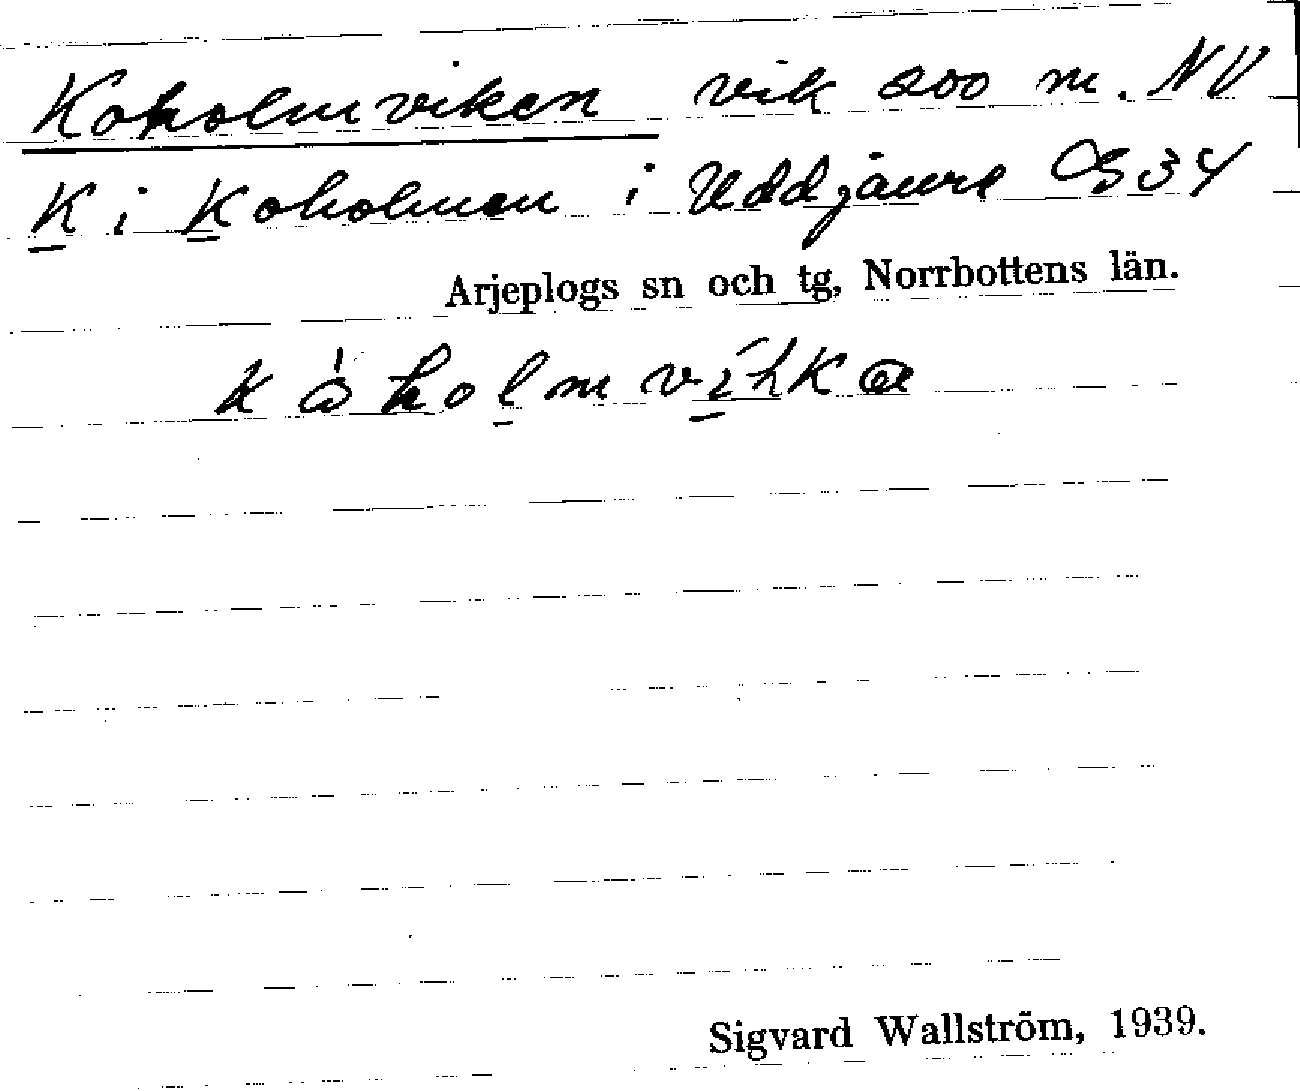 Koholmviken vik 200 m. NV
K i Koholmen i Uddjaure C34
Arjeplogs sn och tg, Norrbottens län.
kåholmvíhka
Sigvard Wallström, 1939.